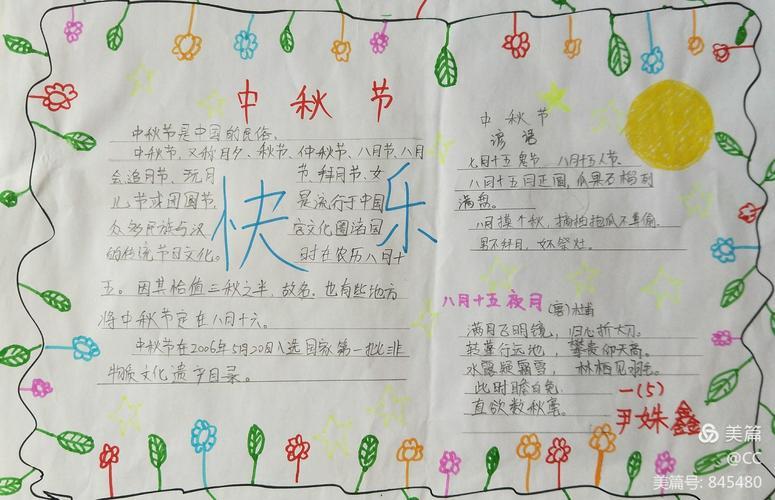 中秋节
中秋节是中国的民俗、
中秋节,又称月夕、秋节、仲秋节、八月节、八月
会、追月节、玩月节、拜月节、女
儿节或团圆节,是流行于中国
众多民族与汉字文化圈诸国
的传统节日文化。时在农历八月十
五。因其恰值三秋之半,故名,也有些地方
将中秋节定在八月十六。
中秋节在2006年5月20日入选国家第一批非
物质文化遗产目录。
快乐
中秋节
谚语
七月十五鬼节、八月十五人节、
八月十五月正圆,瓜果石榴列
满盘。
八月摸个秋,摘柚抱瓜不算偷.
男不拜月,女不祭灶。
八月十五夜月
(唐)杜甫
满月飞明镜,归心折大刀。
转蓬行运地,攀贵仰天高。
水露疑霜雪,林栖见羽毛。
此时瞻白兔,
直欲数秋毫。
一(5)
尹姝鑫
美篇
@CC
美篇号: 845480